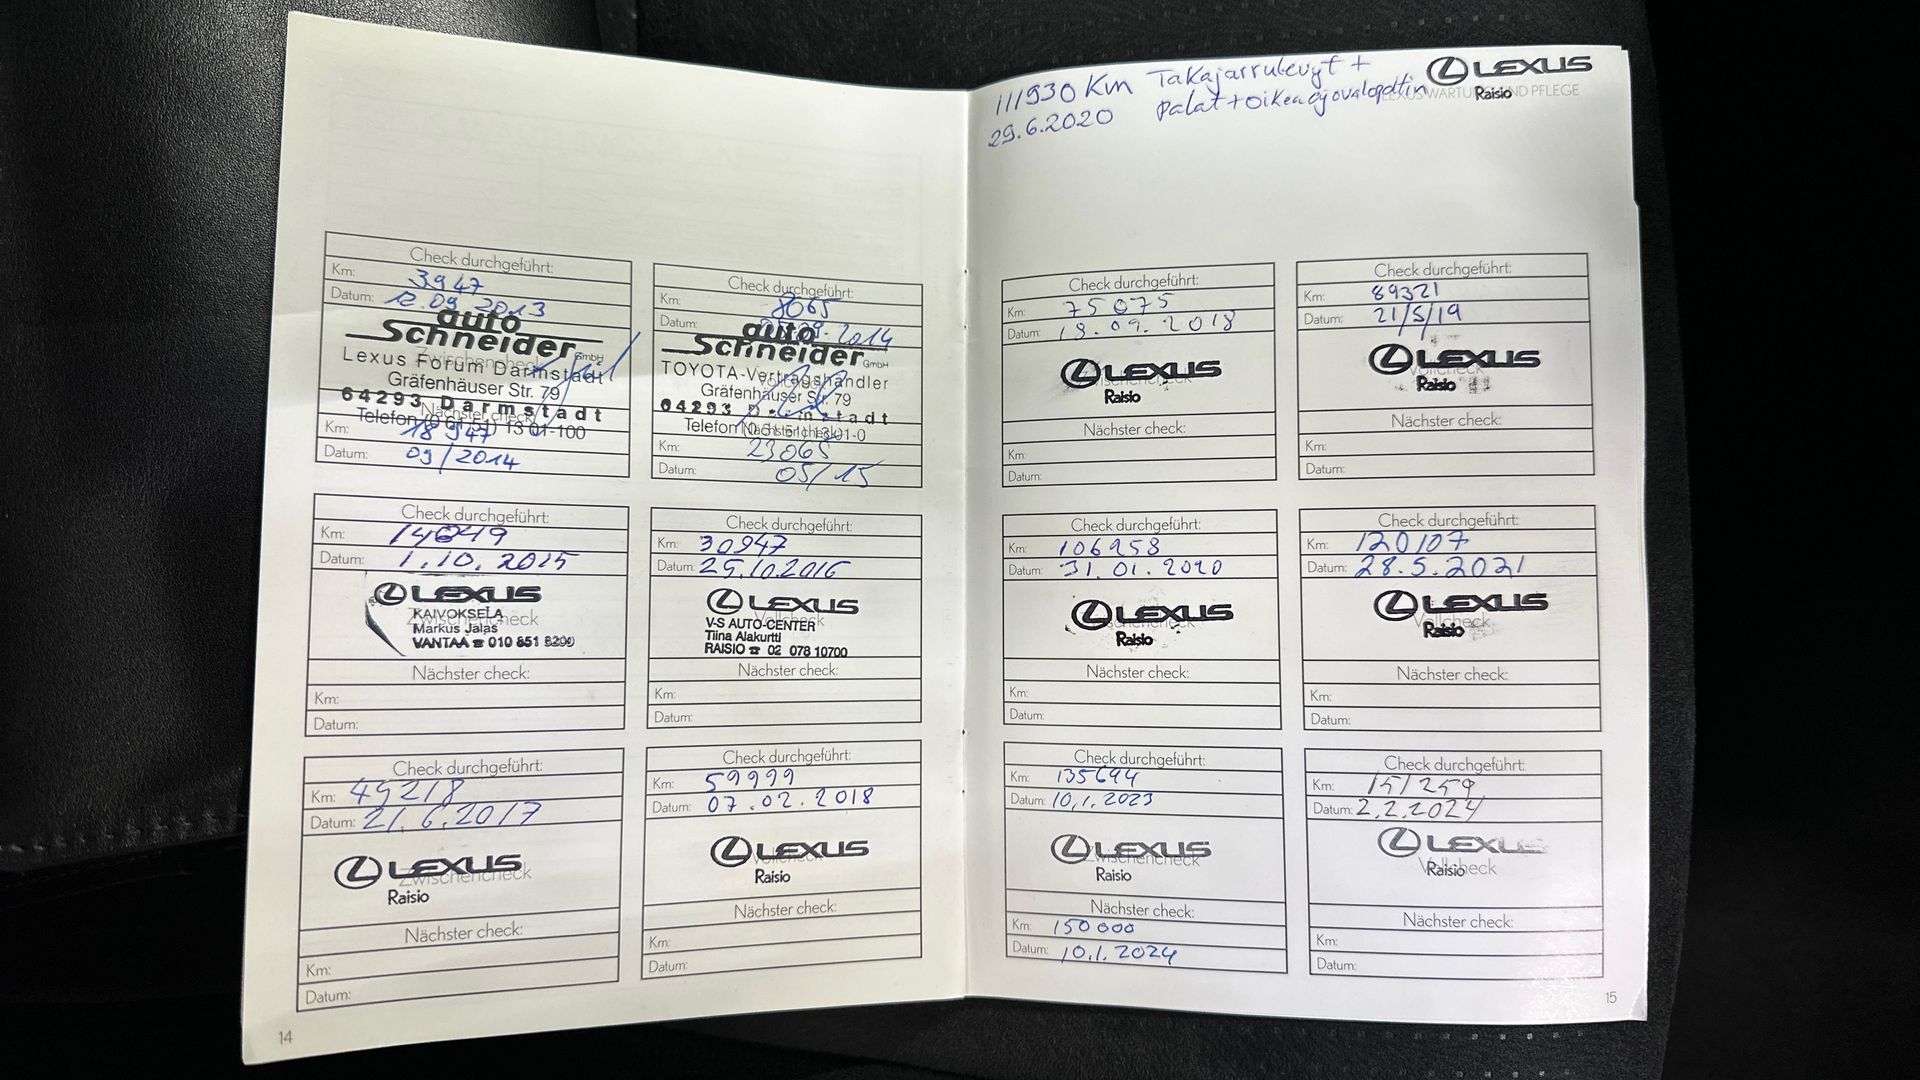 Check durchgeführt:
Km: 3947
Datum: 12.09.2013
auto
Schneider GmbH
Zwischencheck
Lexus Forum Darmstadt
Gräfenhäuser Str. 79
64293 Darmstadt
Nächster check:
Telefon (0 61 51) 13 01-100
Km: 18947
Datum: 09/2014
Check durchgeführt:
Km: 8065
Datum: .09.2014
auto
Schneider GmbH
TOYOTA-Vertragshändler
Gräfenhäuser Str. 79
64293 Darmstadt
Nächster check:
Telefon (0 61 51) 13 01-0
Km: 23065
Datum: 05/15
Check durchgeführt:
Km: 14049
Datum: 1.10.2015
LEXUS
KAIVOKSELA
Zwischencheck
Markus Jalas
VANTAA ☎ 010 851 8200
Nächster check:
Km:
Datum:
Check durchgeführt:
Km: 30947
Datum: 25.10.2016
LEXUS
Vollcheck
V-S AUTO-CENTER
Tiina Alakurtti
RAISIO ☎ 02 078 10700
Nächster check:
Km:
Datum:
Check durchgeführt:
Km: 49218
Datum: 21.6.2017
LEXUS
Zwischencheck
Raisio
Nächster check:
Km:
Datum:
Check durchgeführt:
Km: 59999
Datum: 07.02.2018
LEXUS
Vollcheck
Raisio
Nächster check:
Km:
Datum:
14
111930 Km Takajarrulevyt +
29.6.2020 palat + oikea ajovalopoltin
LEXUS
Raisio
LEXUS WARTUNG UND PFLEGE
Check durchgeführt:
Km: 75075
Datum: 18.09.2018
LEXUS
Zwischencheck
Raisio
Nächster check:
Km:
Datum:
Check durchgeführt:
Km: 89321
Datum: 21/5/19
LEXUS
Vollcheck
Raisio
Nächster check:
Km:
Datum:
Check durchgeführt:
Km: 106958
Datum: 31.01.2020
LEXUS
Zwischencheck
Raisio
Nächster check:
Km:
Datum:
Check durchgeführt:
Km: 120107
Datum: 28.5.2021
LEXUS
Vollcheck
Raisio
Nächster check:
Km:
Datum:
Check durchgeführt:
Km: 135694
Datum: 10.1.2023
LEXUS
Zwischencheck
Raisio
Nächster check:
Km: 150000
Datum: 10.1.2024
Check durchgeführt:
Km: 151259
Datum: 2.2.2024
LEXUS
Vollcheck
Raisio
Nächster check:
Km:
Datum:
15